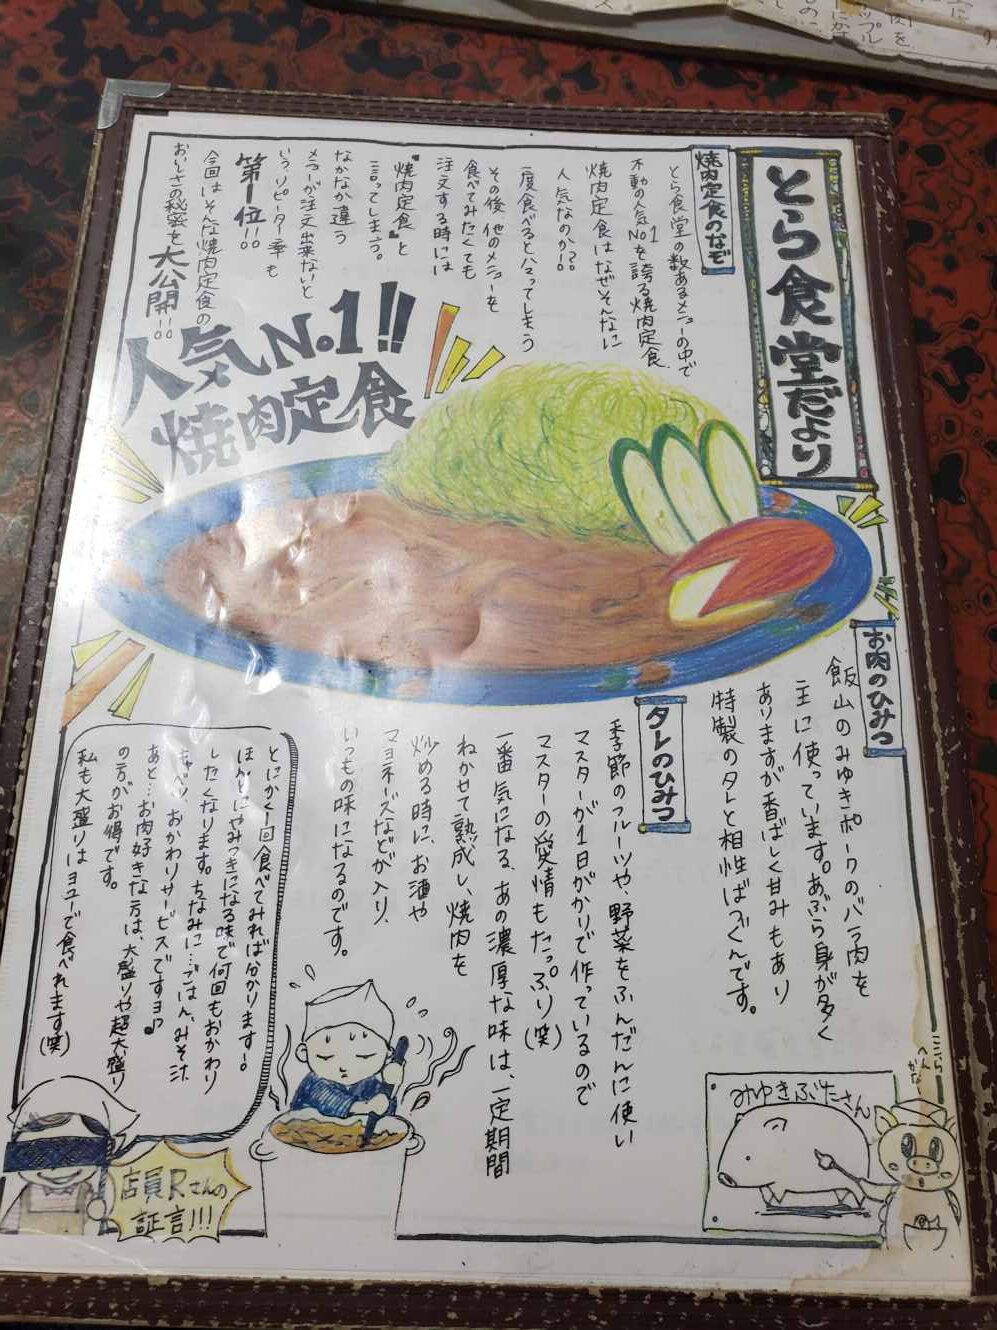 とら食堂だより
焼肉定食のなぞ
とら食堂の数あるメニューの中で
不動の人気No.1を誇る焼肉定食。
焼肉定食はなぜそんなに
人気なのか!?
一度食べるとハマってしまう
その後、他のメニューを
食べてみたくても
注文する時には
"焼肉定食"と
言ってしまう。
なかなか違う
メニューが注文出来ないと
いう、リピーター率も
第一位!!
今回はそんな焼肉定食の
おいしさの秘密を大公開!!
人気No.1!!
焼肉定食
お肉のひみつ
飯山のみゆきポークのバラ肉を
主に使っています。あぶら身が多く
ありますが香ばしく甘みもあり
特製のタレと相性ばつぐんです。
タレのひみつ
季節のフルーツや、野菜をふんだんに使い
マスターが1日がかりで作っているので
マスターの愛情もたっぷり(笑)
一番気になる、あの濃厚な味は、一定期間
ねかせて熟成し、焼肉を
炒める時に、お酒や
マヨネーズなどが入り、
いつもの味になるのです。
とにかく1回食べてみれば分かります!。
ほんとにやみつきになる味で何回もおかわり
したくなります。ちなみに…ごはん、みそ汁
キャベツ、おかわりサービスですヨ♪
あと…お肉好きな方は、大盛りや超大盛り
の方がお得です。
私も大盛りはヨユーで食べれます(笑)
店員Rさんの
証言!!!
みゆきぶたさん
ここら
へん
かな